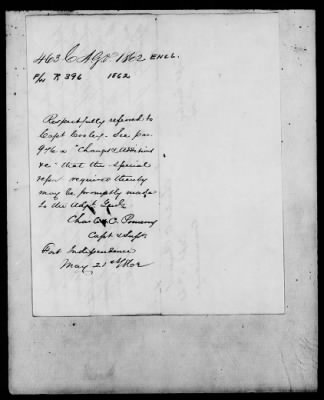 463 C AGO 1862 ENCL.
P 396 1862
Respectfully referred to
Capt Cooley. See par.
976 a "Changes & Additions
&c" that the special
repor required thereby
may be promptly made
to the Adjt Genl.
Chas C. Pomeroy
Capt & Supt
Fort Independence
May 21st 1862